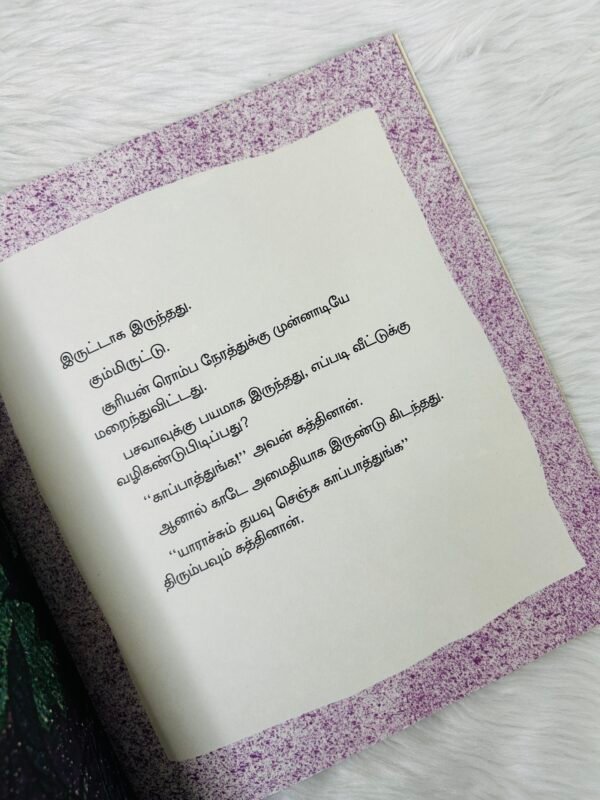 இருட்டாக இருந்தது.
கும்மிருட்டு.
சூரியன் ரொம்ப நேரத்துக்கு முன்னாடியே
மறைந்துவிட்டது.
பசவாவுக்கு பயமாக இருந்தது, எப்படி வீட்டுக்கு
வழிகண்டுபிடிப்பது?
“காப்பாத்துங்க!” அவன் கத்தினான்.
ஆனால் காடே அமைதியாக இருண்டு கிடந்தது.
“யாராச்சும் தயவு செஞ்சு காப்பாத்துங்க”
திரும்பவும் கத்தினான்.